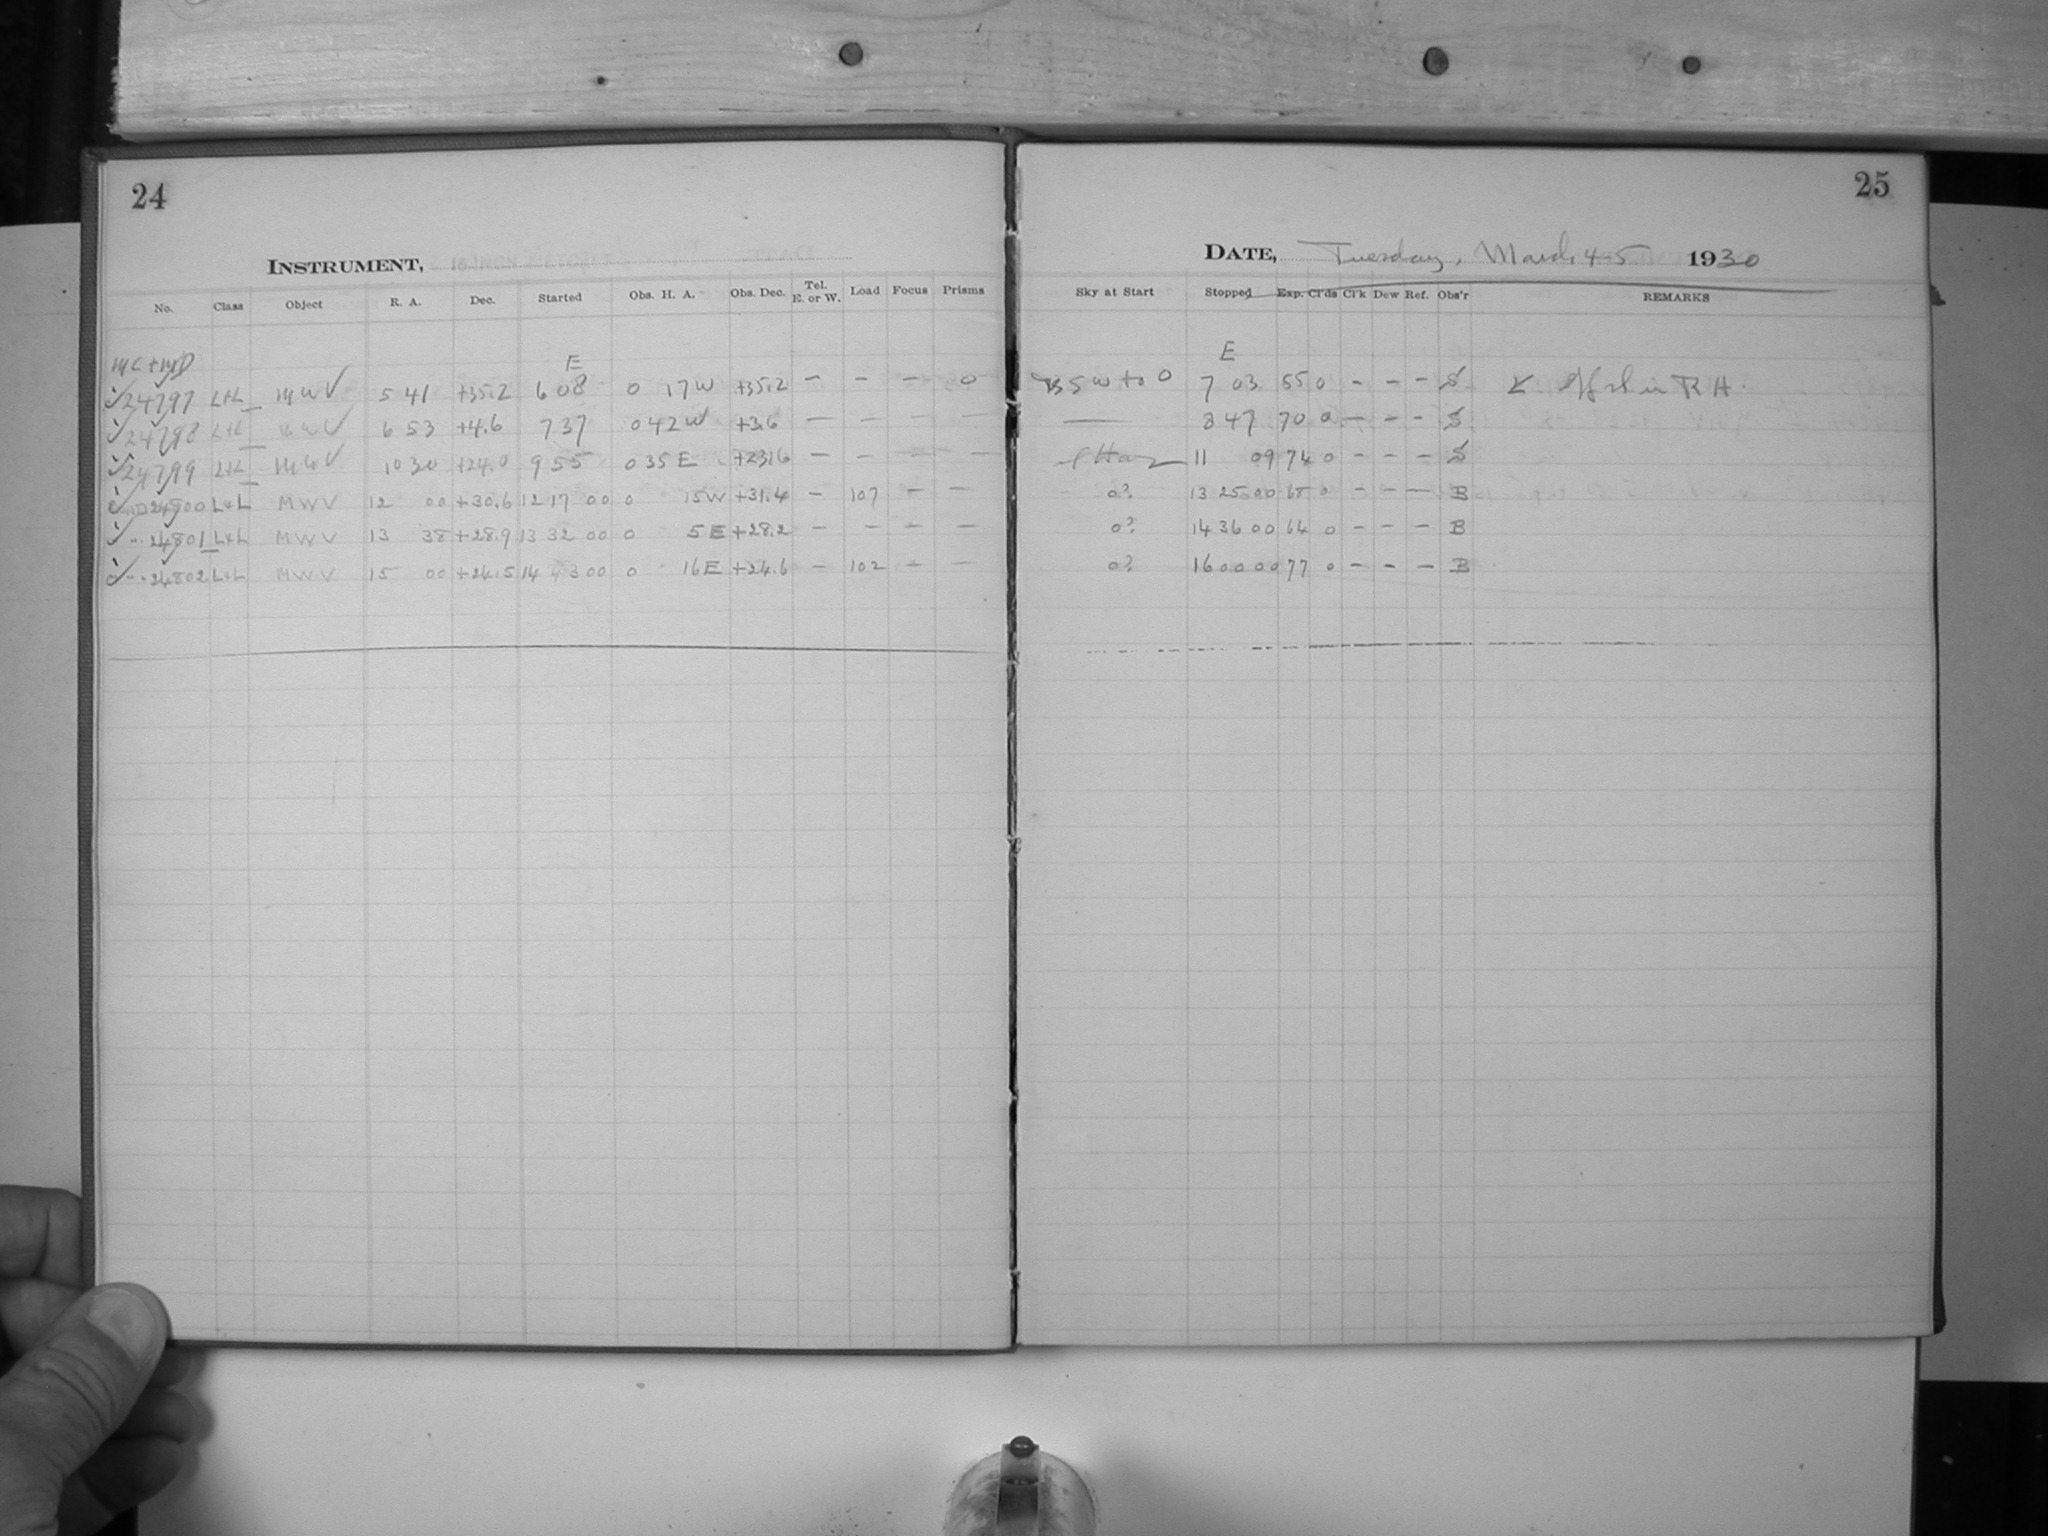 24
INSTRUMENT,
No. Class Object R. A. Dec. Started Obs. H. A. Obs. Dec. Tel. E. or W. Load Focus Prisms
MC + MD
E
24797 L+L MWV 5 41 +35.2 6 08 0 17W +35.2 – – – 0
24798 L+L MWV 6 53 +4.6 7 37 0 42W +3.6 – – – –
24799 L+L MWV 10 30 +24.0 9 55 0 35 E +23.6 – – – –
24800 L+L MWV 12 00 +30.6 12 17 00 0 15W +31.4 – 107 – –
24801 L+L MWV 13 38 +28.9 13 32 00 0 5E +28.2 – – – –
24802 L+L MWV 15 00 +24.5 14 43 00 0 16E +24.6 – 102 – –
25
DATE, Tuesday, March 4-5 1930
Sky at Start Stopped Exp. Cl'ds Cl'k Dew Ref. Obs'r REMARKS
E
SW to 0 7 03 55 0 – – – S R H.
— 8 47 70 0 – – – S
11 09 74 0 – – – S
0? 13 25 00 68 0 – – – B
0? 14 36 00 64 0 – – – B
0? 16 00 00 77 0 – – – B